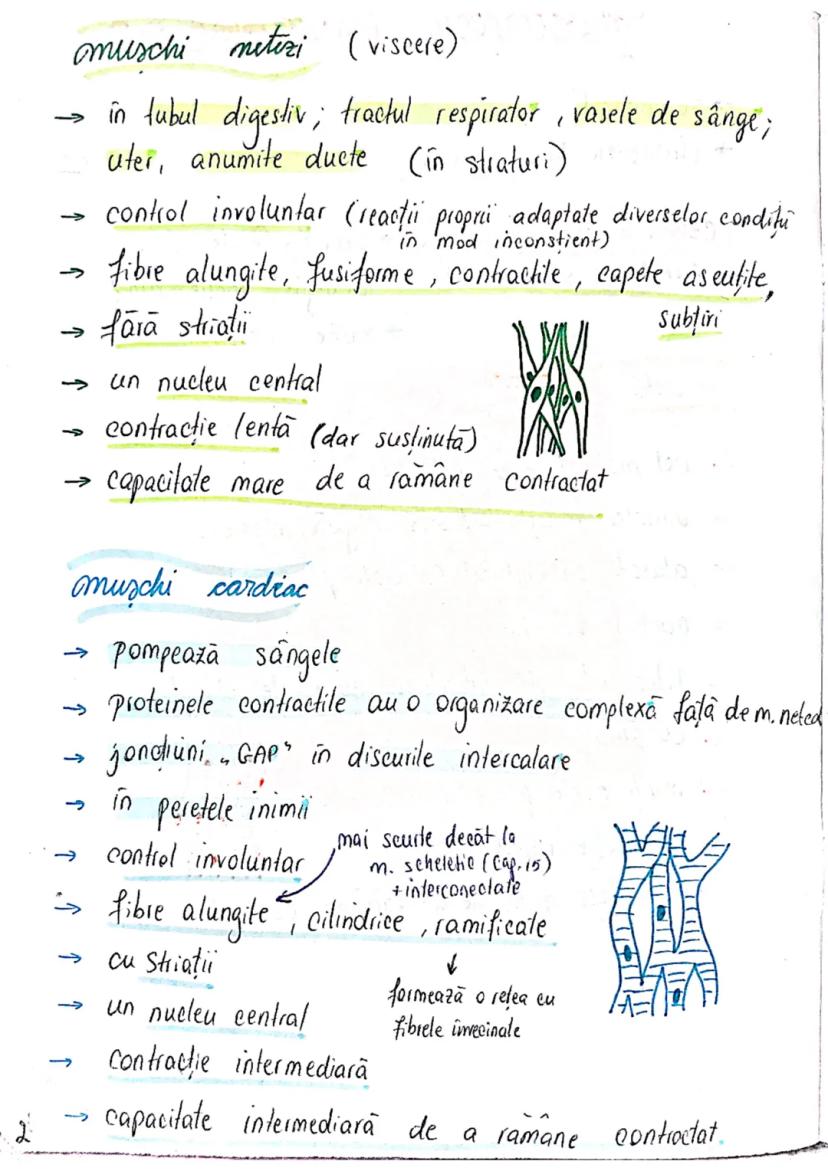 muşchi netezi (viscere)
→ în tubul digestiv; tractul respirator, vasele de sânge;
uter, anumite ducte (în straturi)
→ control involuntar (reacţii proprii adaptate diverselor condiţii
în mod inconştient)
→ fibre alungite, fusiforme, contractile, capete ascuţite,
subţiri
→ fără striaţii
→ un nucleu central
→ contracţie lentă (dar susţinută)
→ capacitate mare de a rămâne contractat
muşchi cardiac
→ pompează sângele
→ proteinele contractile au o organizare complexă faţă de m. neted
→ joncţiuni „GAP" în discurile intercalare
→ în peretele inimii
mai scurte decât la
→ control involuntar
m. scheletic (Cap. 15)
+ interconectate
→ fibre alungite, cilindrice, ramificate
→ cu striaţii
formează o reţea cu
→ un nucleu central
fibrele învecinate
→ contracţie intermediară
→ capacitate intermediară de a rămâne contractat.
2